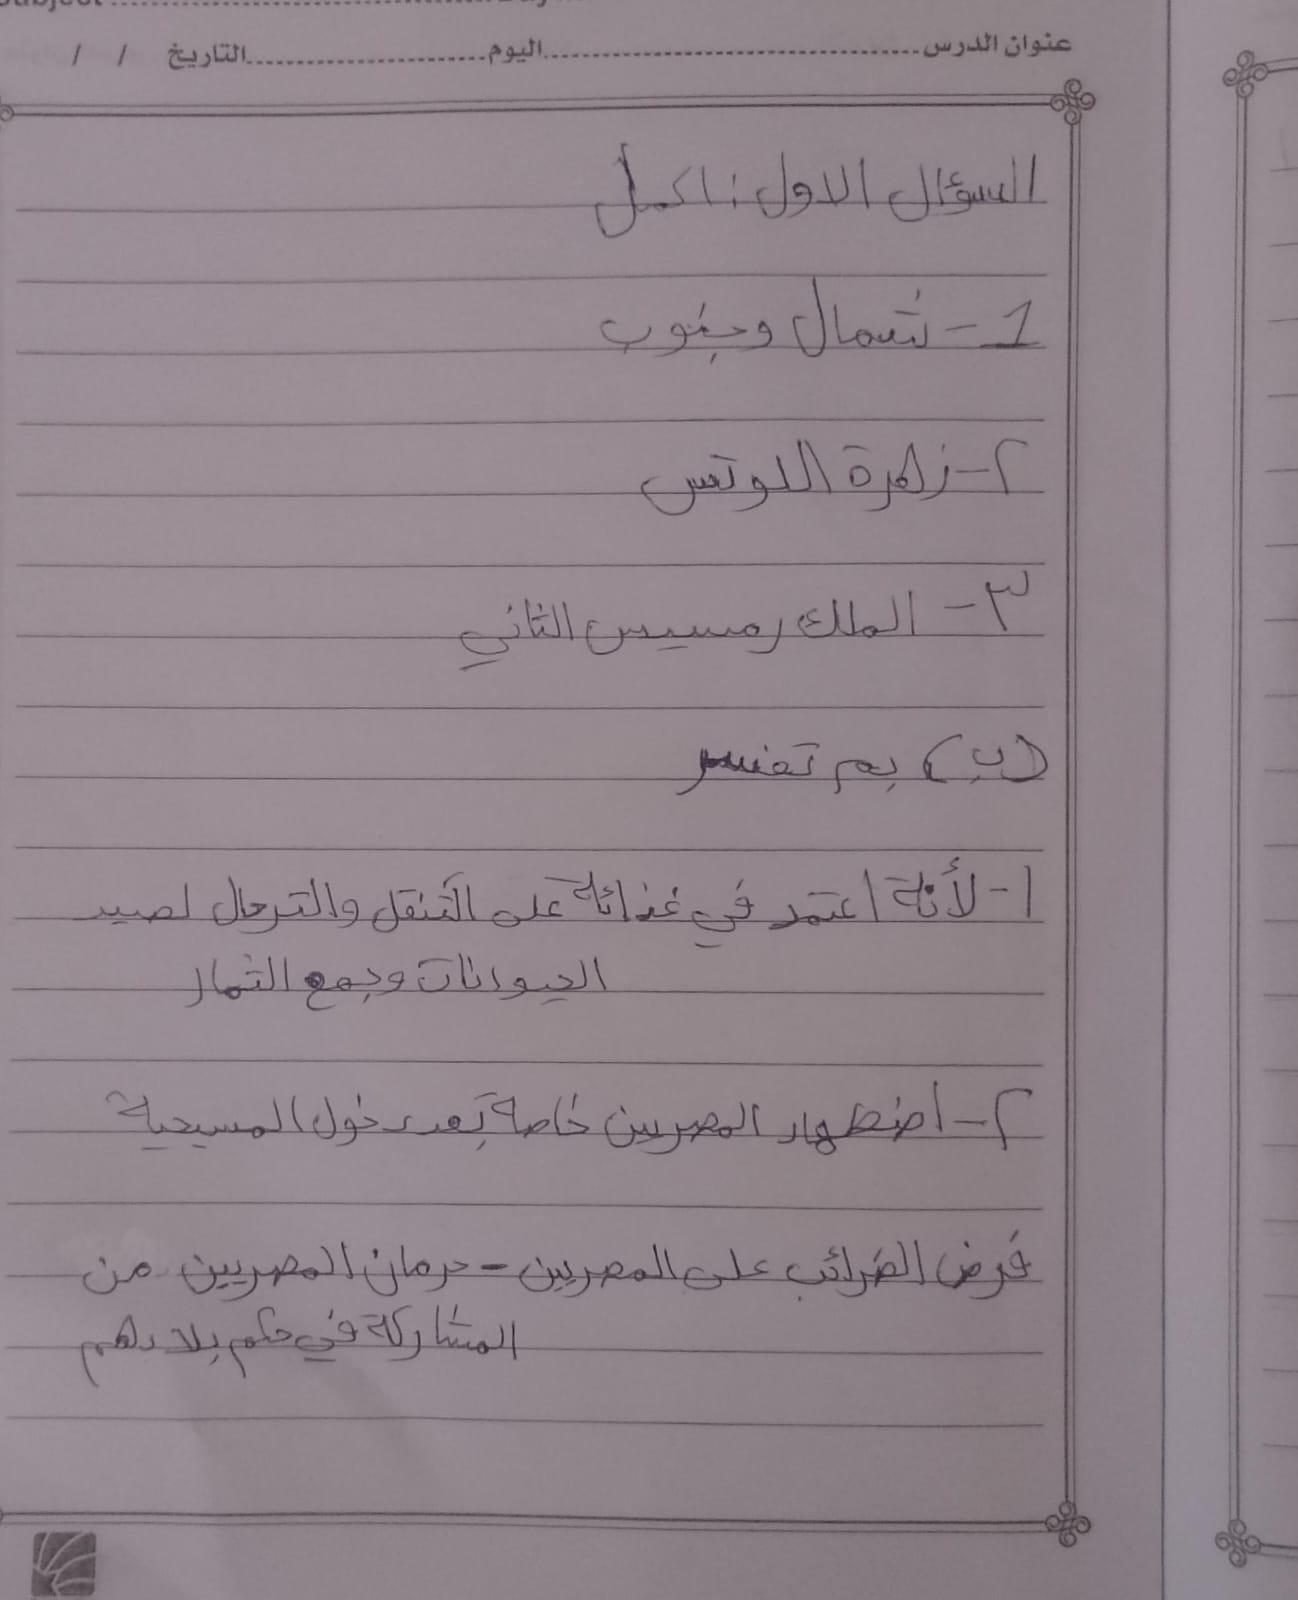 عنوان الدرس اليوم التاريخ / /
السؤال الاول : اكمل
1 - شمال وجنوب
٢ - زهرة اللوتس
٣ - الملك رمسيس الثاني
(ب) بم تفسر
١ - لأنة اعتمد في غذائة على التنقل والترحال لصيد
الحيوانات وجمع الثمار
٢ - اضطهار المصريين خاصة بعد دخول المسيحية
فرض الضرائب على المصريين - حرمان المصريين من
المشاركة في حكم بلادهم